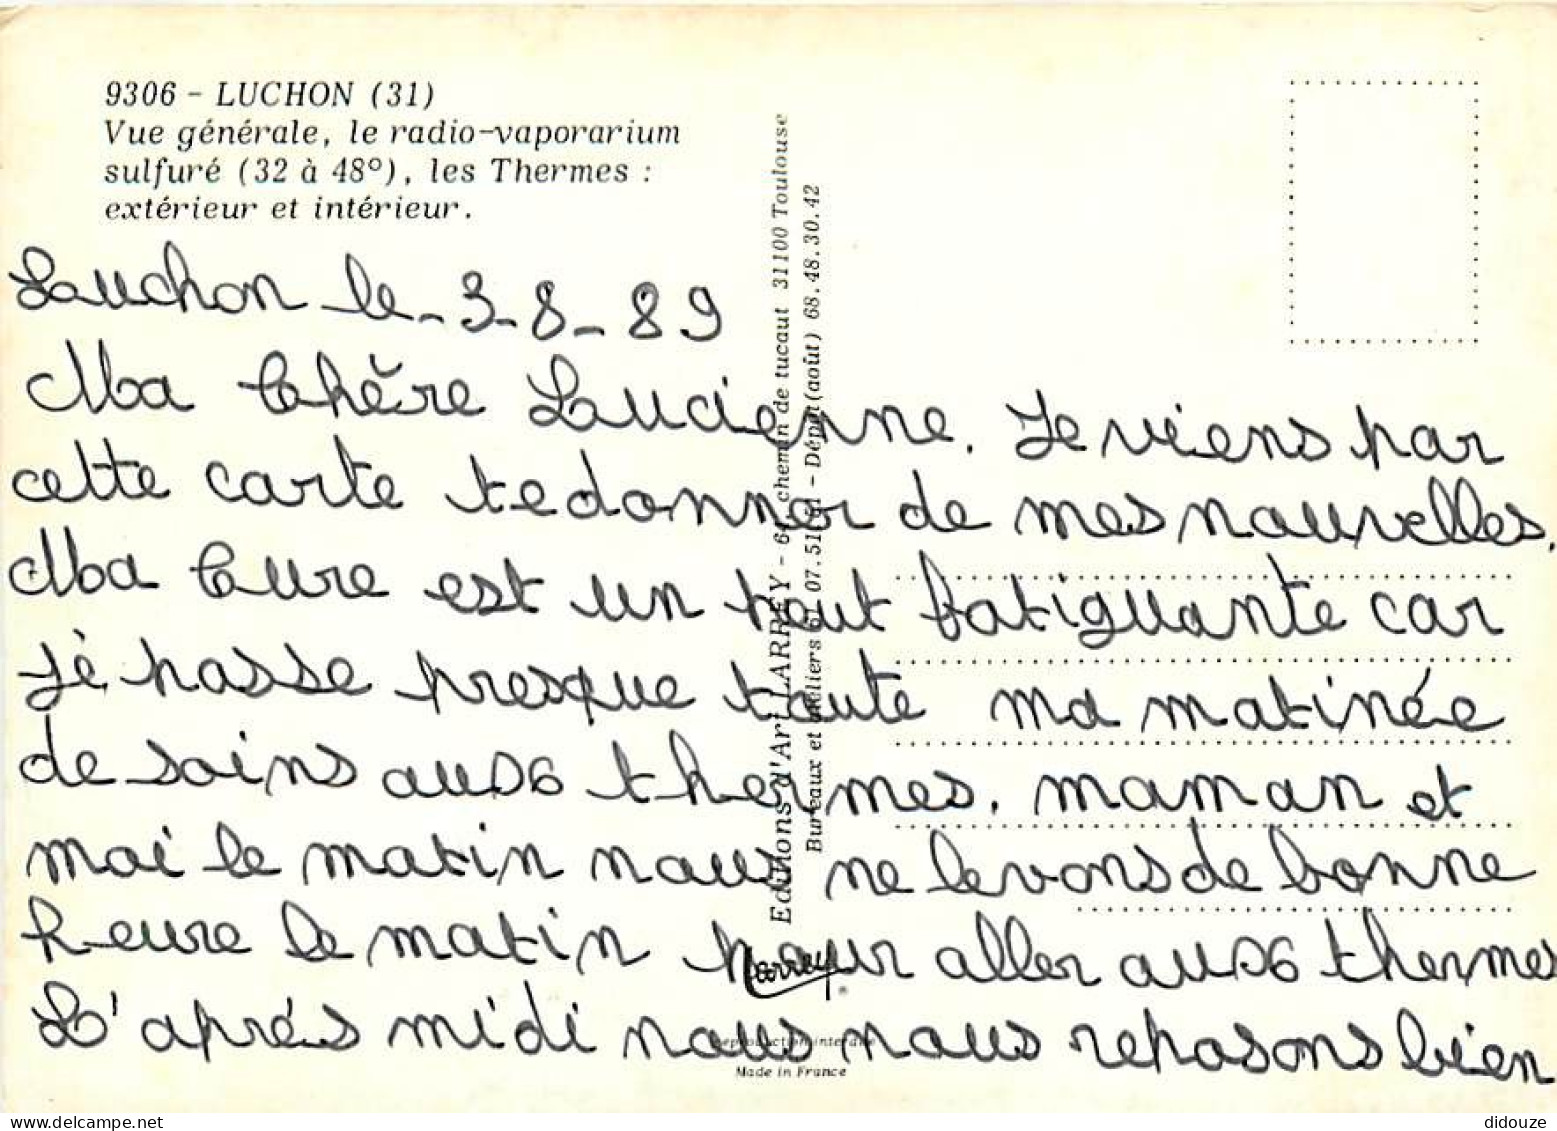 9306 - LUCHON (31)
Vue générale, le radio-vaporarium
sulfuré (32 à 48°), les Thermes :
extérieur et intérieur.
Luchon le - 3 - 8 - 89
Ma Chère Lucienne. Je viens par
cette carte te donner de mes nouvelles.
Ma Cure est un peut fatiguante car
je passe presque toute ma matinée
de soins aux thermes. maman et
moi le matin nous ne levons de bonne
heure le matin pour aller aux thermes
L'après midi nous nous reposons bien
Editions d'Art LARREY - chemin de tucaut 31100 Toulouse
Bureaux et ateliers 61.07.51 - Dépôt (août) 68.48.30.42
Larrey
Reproduction interdite
Made in France
didouze